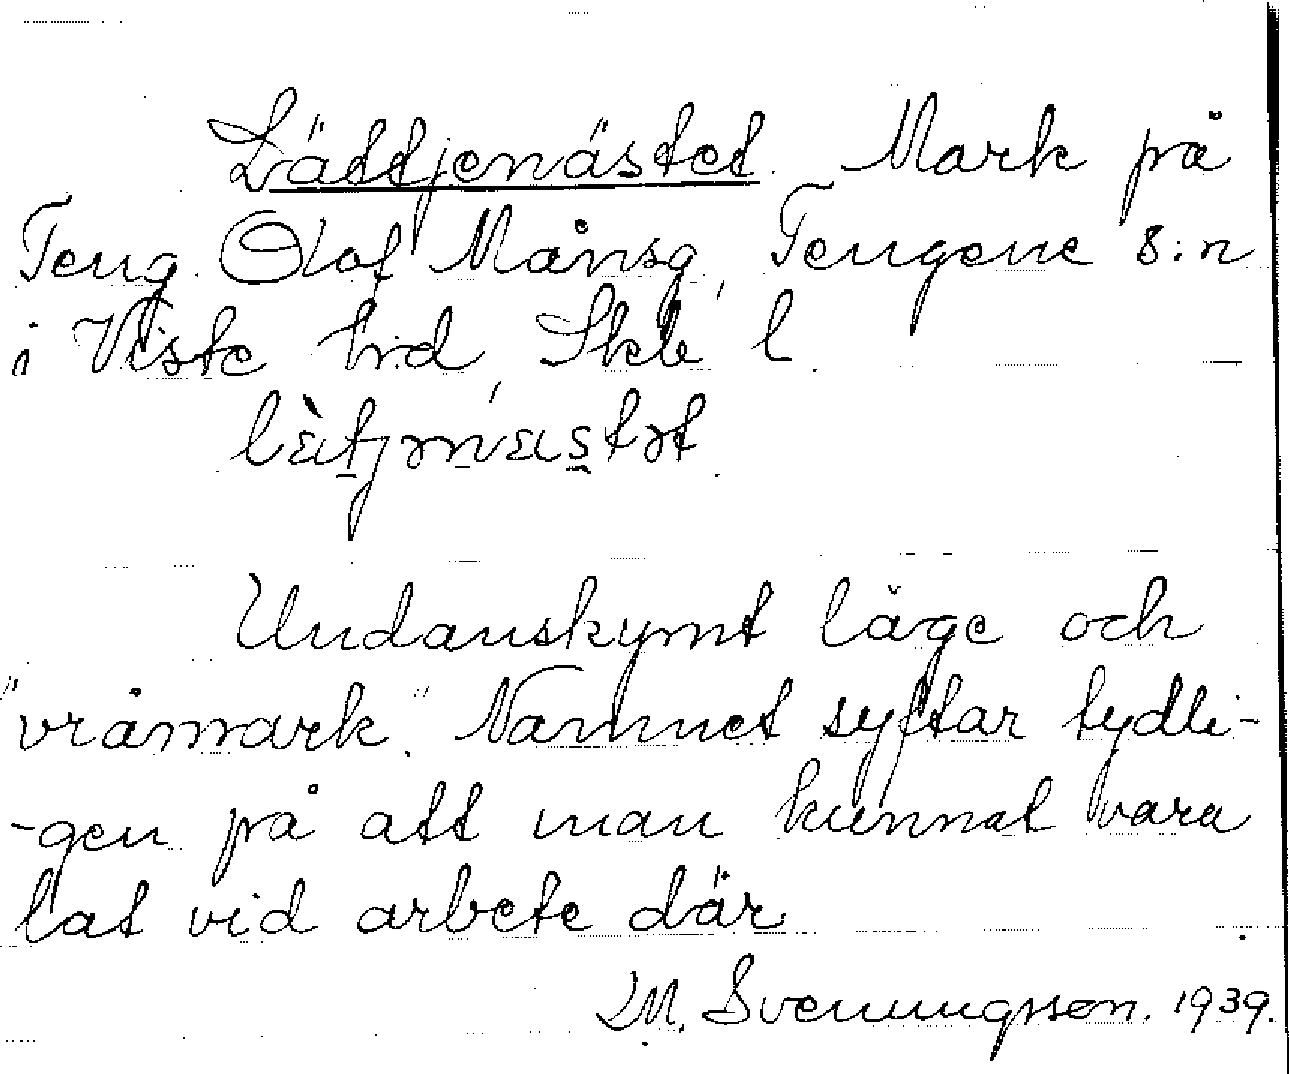 Lättjenästet. Mark på
Teng. Olof Månsg, Tengene s:n
i Viste hd, Skb l
Undanskymt läge och
"vråmark". Namnet syftar tydli-
-gen på att man kunnat vara
lat vid arbete där.
M. Svenungsson. 1939.